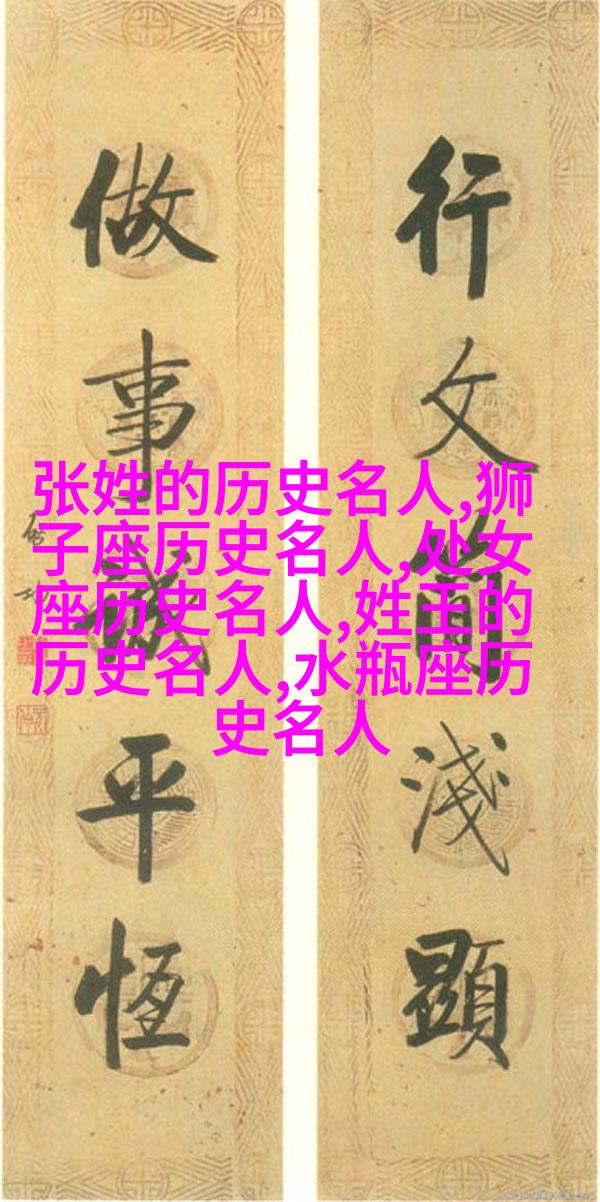 行文簡淺顯
做事誠平恆
张姓的历史名人,狮
子座历史名人,处女
座历史名人,姓王的
历史名人,水瓶座历
史名人